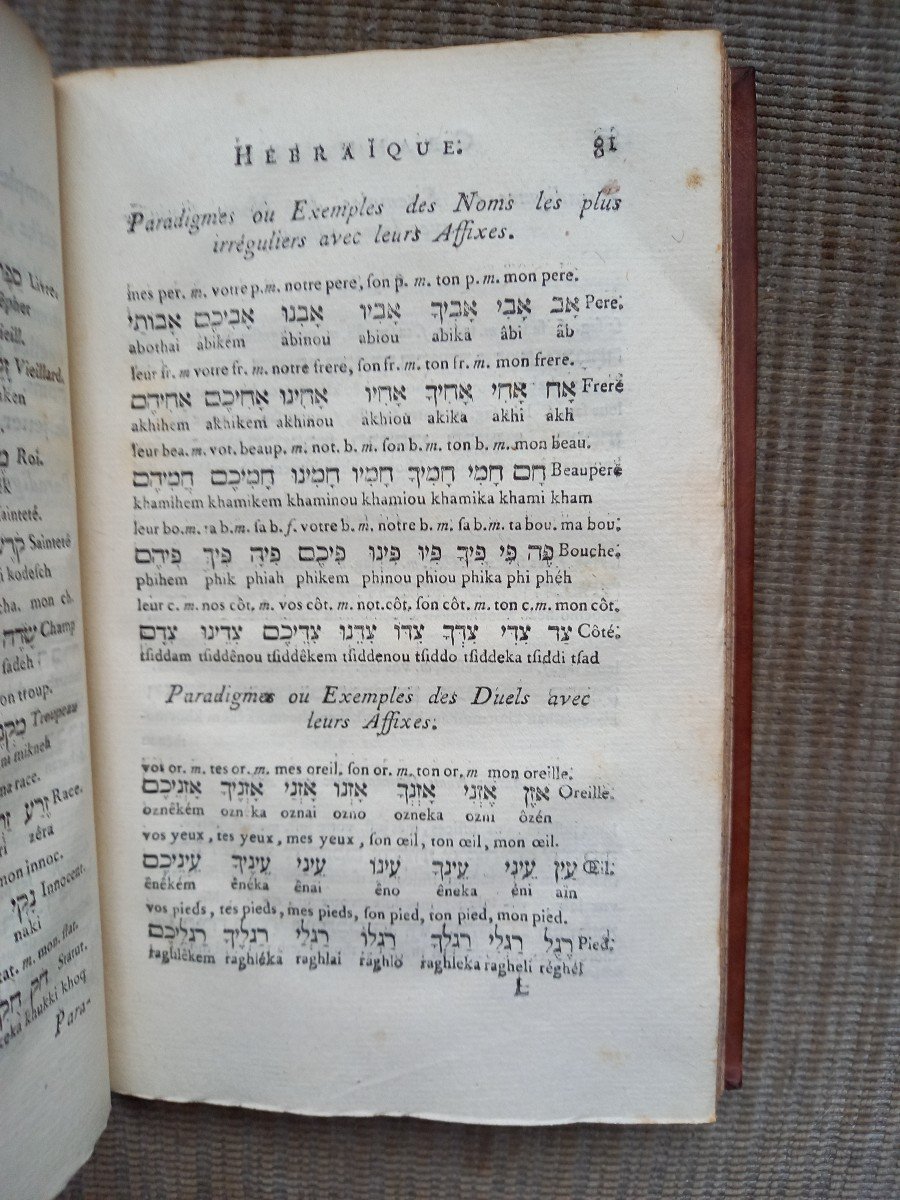 ספר Livre.
Vieillard.
Roi.
Sainteté.
קדש Sainteté
kodesch
cha. mon ch.
שדה Champ
sadeh
on troup.
Troupeau
mikneh
ma race.
זרע Race.
zéra
mon innoc.
Innocent.
נקי
naki
tat. m. mon. stat.
Statut.
khukki khoq
Para-
HEBRAÏQUE. 81
Paradigmes ou Exemples des Noms les plus
irréguliers avec leurs Affixes.
mes per. m. votre p.m. notre pere, son p. m. ton p.m. mon pere.
אָב אָבִי אָבִיךָ אָבִיו אָבִנוּ אֲבִיכֶם אבותי Pere:
abothai abikém âbinou abiou abika âbi âb
leur fr. m votre fr. m. notre frere, son fr. m. ton fr. m. mon frere.
אָח אָחִי אָחִיךָ אָחִיו אָחִינוּ אֲחִיכֶם אֲחִיהֶם Frere
akhihem akhikem akhinou akhiou akika akhi akh
leur bea. m. vot. beaup. m. not. b. m. son b. m. ton b. m. mon beau.
חָם חָמִי חָמִיךָ חָמִיו חָמִינוּ חֲמִיכֶם חֲמִיהֶם Beaupere
khamihem khamikem khaminou khamiou khamika khami kham
leur bo. m. ta b. m. sa b. f. votre b. m. notre b. m. sa b.m. ta bou. ma bou.
פֶּה פִּי פִּיךָ פִּיו פִּינוּ פִּיכֶם פִּיה פִּיךְ פִּיהֶם Bouche:
phihem phik phiah phikem phinou phiou phika phi phéh
leur c. m. nos côt. m. vos côt. m. not. côt. son côt. m. ton c. m. mon côt.
צַד צִדִּי צִדְּךָ צִדּוֹ צִדֵּנוּ צִדֵּיכֶם צִדֵּינוּ צִדָּם Côté:
tsiddam tsiddênou tsiddêkem tsiddenou tsiddo tsiddeka tsiddi tsad
Paradigmes ou Exemples des Duels avec
leurs Affixes.
vos or. m. tes or. m. mes oreil. son or. m. ton or. m mon oreille.
אֹזֶן אָזְנִי אָזְנְךָ אָזְנוֹ אָזְנַי אָזְנֶיךָ אָזְנֵיכֶם Oreille.
oznêkém ozneka oznai ozno ozneka ozni ôzén
vos yeux, tes yeux, mes yeux, son œil, ton œil, mon œil.
עַיִן עֵינִי עֵינְךָ עֵינוֹ עֵינַי עֵינֶיךָ עֵינֵיכֶם Œil:
ênêkém ênéka ênai êno êneka êni aïn
vos pieds, tes pieds, mes pieds, son pied, ton pied, mon pied.
רֶגֶל רַגְלִי רַגְלְךָ רַגְלוֹ רַגְלַי רַגְלֶיךָ רַגְלֵיכֶם Pied:
raghlêkem raghléka raghlai raghlo raghleka ragheli réghél
L